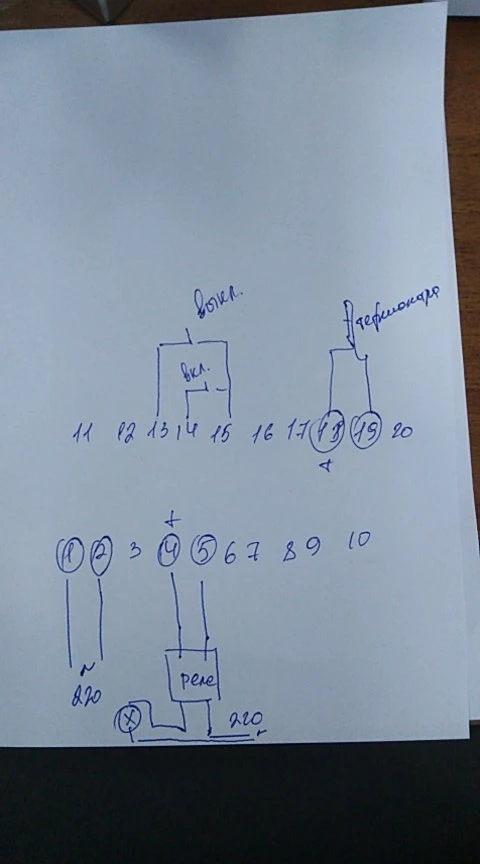 выкл.
термопара
вкл.
11 12 13 14 15 16 17 18 19 20
+
+
1 2 3 4 5 6 7 8 9 10
реле
~
220
X
220
~